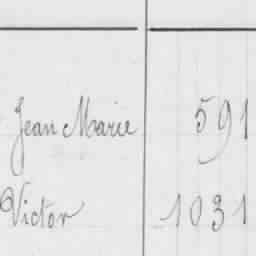 Jean Marie 591
Victor 1031